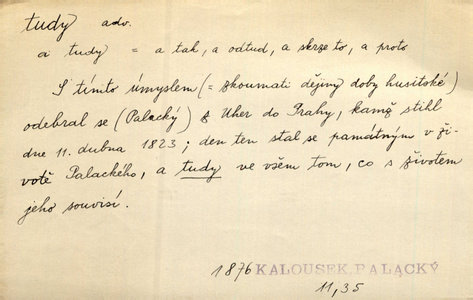 tudy adv.
a tudy = a tak, a odtud, a skrze to, a proto
S tímto úmyslem (= zkoumati dějiny doby husitské)
odebral se (Palacký) z Uher do Prahy, kamž stihl
dne 11. dubna 1823; den ten stal se památným v ži-
votě Palackého, a tudy ve všem tom, co s životem
jeho souvisí.
1876 KALOUSEK, PALACKÝ
11,35